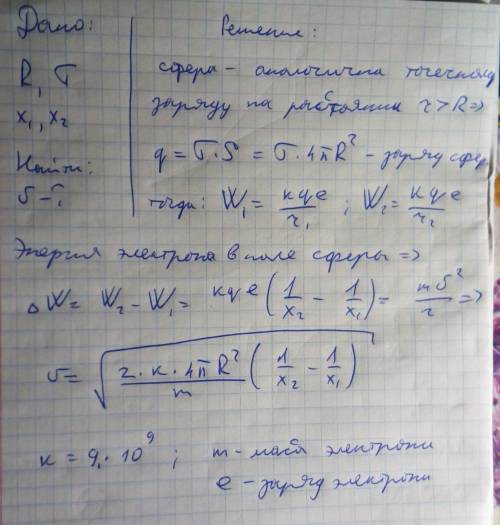 Дано:
Решение:
R, σ
x₁, x₂
Найти:
υ - ?
сфера - аналогична точечному
заряду на расстоянии r > R =>
q = σ·S = σ·4πR² - заряд сфер
тогда: W₁ = kqe/r₁ ; W₂ = kqe/r₂
Энергия электрона в поле сферы =>
ΔW = W₂ - W₁ = kqe (1/x₂ - 1/x₁) = mυ²/2 =>
υ = √(2·k·4πR²/m (1/x₂ - 1/x₁))
k = 9·10⁹ ; m - масса электрона
e - заряд электрона